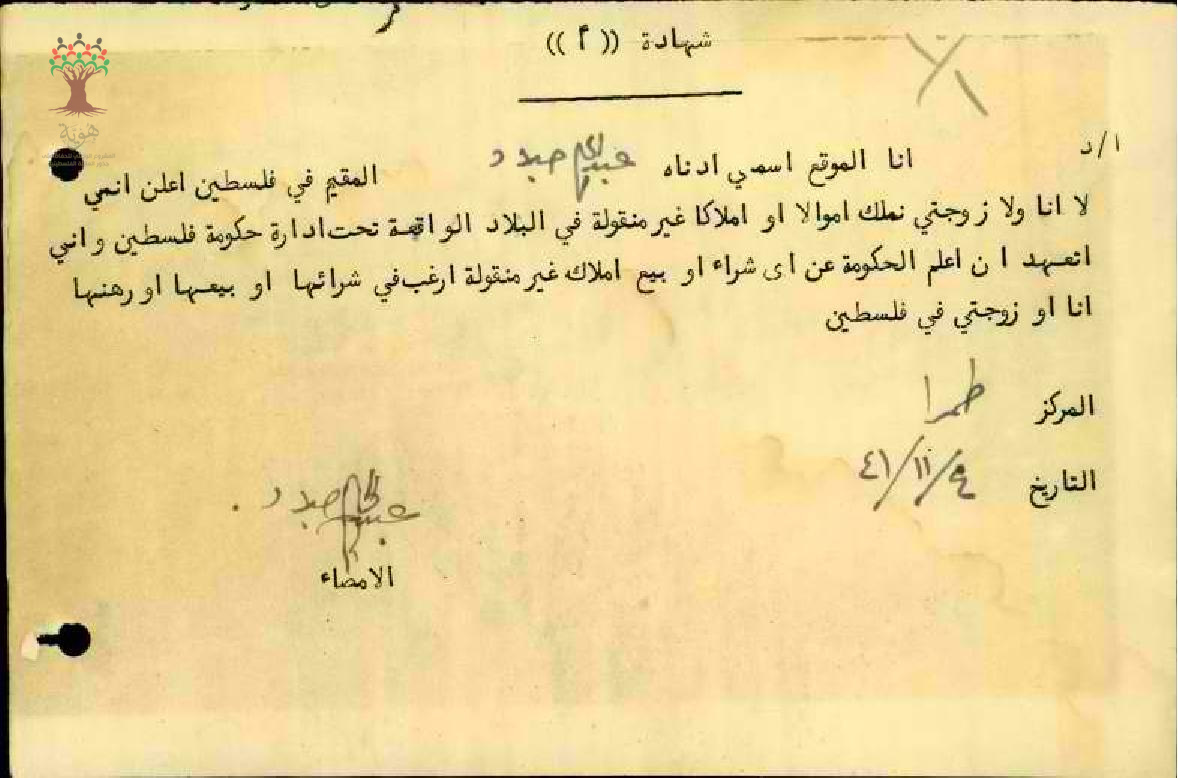 شهادة ((٢))
د/١
انا الموقع اسمي ادناه المقيم في فلسطين اعلن انني
لا انا ولا زوجتي نملك اموالا او املاكا غير منقولة في البلاد الواقعة تحت ادارة حكومة فلسطين واني
اتعهد ان اعلم الحكومة عن اى شراء او بيع املاك غير منقولة ارغب في شرائها او بيعها او رهنها
انا او زوجتي في فلسطين
المركز طمرا
التاريخ ٤١/١١/
الامضاء
هوية